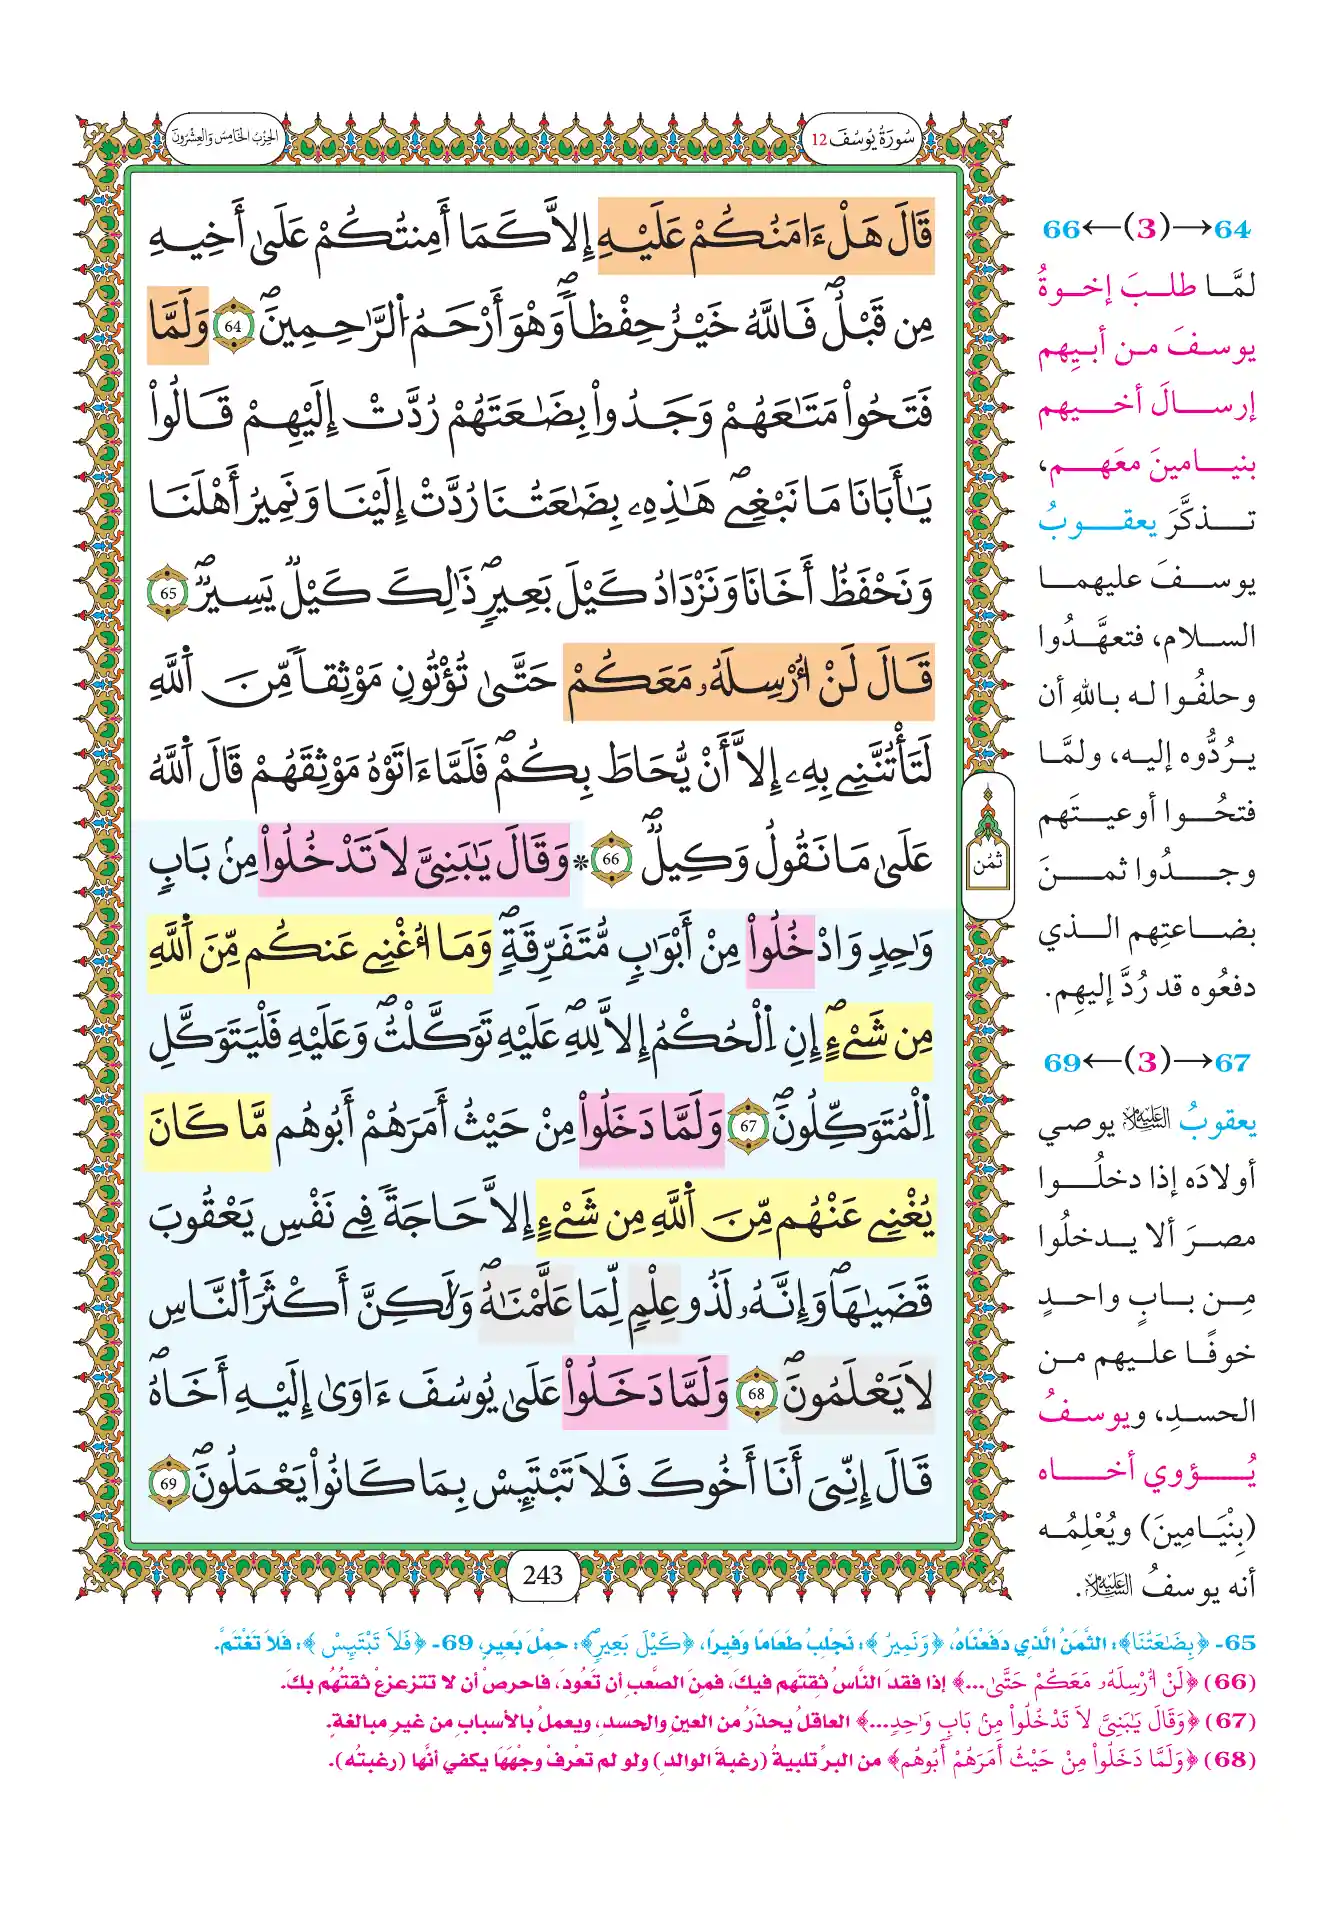 سُورَةُ يُوسُفَ 12
الحِزْبُ الخَامِسُ وَالعِشْرُونَ
قَالَ هَلْ ءَامَنُكُمْ عَلَيْهِ إِلاَّ كَمَا أَمِنتُكُمْ عَلَىٰ أَخِيهِ
مِن قَبْلُ فَاللَّهُ خَيْرٌ حِفْظاً وَهُوَ أَرْحَمُ اُلرَّٰحِمِينَ 64 وَلَمَّا
فَتَحُواْ مَتَٰعَهُمْ وَجَدُواْ بِضَٰعَتَهُمْ رُدَّتْ إِلَيْهِمْ قَالُواْ
يَٰأَبَانَا مَا نَبْغِے هَٰذِهِۦ بِضَٰعَتُنَا رُدَّتْ إِلَيْنَا وَنَمِيرُ أَهْلَنَا
وَنَحْفَظُ أَخَانَا وَنَزْدَادُ كَيْلَ بَعِيرٍ ذَٰلِكَ كَيْلٌ يَسِيرٌ 65
قَالَ لَنْ اُرْسِلَهُۥ مَعَكُمْ حَتَّىٰ تُؤْتُونِ مَوْثِقاً مِّنَ اَللَّهِ
لَتَأْتُنَّنِے بِهِۦ إِلاَّ أَنْ يُّحَاطَ بِكُمْ فَلَمَّا ءَاتَوْهُ مَوْثِقَهُمْ قَالَ اَللَّهُ
عَلَىٰ مَا نَقُولُ وَكِيلٌ 66 * وَقَالَ يَٰبَنِيَّ لاَ تَدْخُلُواْ مِنۢ بَابٍ
وَٰحِدٍ وَادْخُلُواْ مِنْ أَبْوَٰبٍ مُّتَفَرِّقَةٍ وَمَا اُغْنِے عَنكُم مِّنَ اَللَّهِ
مِن شَےْءٍ إِنِ اِلْحُكْمُ إِلاَّ لِلهِ عَلَيْهِ تَوَكَّلْتُ وَعَلَيْهِ فَلْيَتَوَكَّلِ
اِلْمُتَوَكِّلُونَ 67 وَلَمَّا دَخَلُواْ مِنْ حَيْثُ أَمَرَهُمْ أَبُوهُم مَّا كَانَ
يُغْنِے عَنْهُم مِّنَ اَللَّهِ مِن شَےْءٍ إِلاَّ حَاجَةً فِے نَفْسِ يَعْقُوبَ
قَضَىٰهَا وَإِنَّهُۥ لَذُو عِلْمٍ لِّمَا عَلَّمْنَٰهُ وَلَٰكِنَّ أَكْثَرَ اَلنَّاسِ
لاَ يَعْلَمُونَ 68 وَلَمَّا دَخَلُواْ عَلَىٰ يُوسُفَ ءَاوَىٰ إِلَيْهِ أَخَاهُ
قَالَ إِنِّيَ أَنَا أَخُوكَ فَلاَ تَبْتَئِسْ بِمَا كَانُواْ يَعْمَلُونَ 69
ثُمُن
243
64→(3)←66
لمَّا طلبَ إخوةُ
يوسفَ من أبيهم
إرسالَ أخيهم
بنيامينَ معَهم،
تذكَّرَ يعقوبُ
يوسفَ عليهما
السلام، فتعهَّدُوا
وحلفُوا له باللهِ أن
يرُدُّوه إليه، ولمَّا
فتحُوا أوعيتَهم
وجدُوا ثمنَ
بضاعتِهم الذي
دفعُوه قد رُدَّ إليهِم.
67→(3)←69
يعقوبُ عليه السلام يوصي
أولادَه إذا دخلُوا
مصرَ ألا يدخلُوا
مِن بابٍ واحدٍ
خوفًا عليهم من
الحسدِ، ويوسفُ
يُؤوي أخاه
(بِنْيَامِينَ) ويُعْلِمُه
أنه يوسفُ عليه السلام.
65- ﴿بِضَٰعَتُنَا﴾: الثَّمَنُ الَّذِي دَفَعْنَاهُ، ﴿وَنَمِيرُ﴾: نَجْلِبُ طَعَامًا وَفِيرًا، ﴿كَيْلَ بَعِيرٍ﴾: حِمْلَ بَعِيرٍ، 69- ﴿فَلاَ تَبْتَئِسْ﴾: فَلاَ تَغْتَمَّ.
(66) ﴿لَنْ اُرْسِلَهُۥ مَعَكُمْ حَتَّىٰ...﴾ إذا فقدَ النَّاسُ ثِقتَهم فيكَ، فمنَ الصَّعبِ أن تَعُودَ، فاحرصْ أن لا تتزعزعَ ثقتُهُم بكَ.
(67) ﴿وَقَالَ يَٰبَنِيَّ لاَ تَدْخُلُواْ مِنۢ بَابٍ وَٰحِدٍ...﴾ العاقلُ يحذَرُ من العينِ والحسدِ، ويعملُ بالأسبابِ من غيرِ مبالغةٍ.
(68) ﴿وَلَمَّا دَخَلُواْ مِنْ حَيْثُ أَمَرَهُمْ أَبُوهُم﴾ من البرِّ تلبيةُ (رغبةَ الوالدِ) ولو لم تعْرفْ وجْهَهَا يكفي أنَّها (رغبتُه).